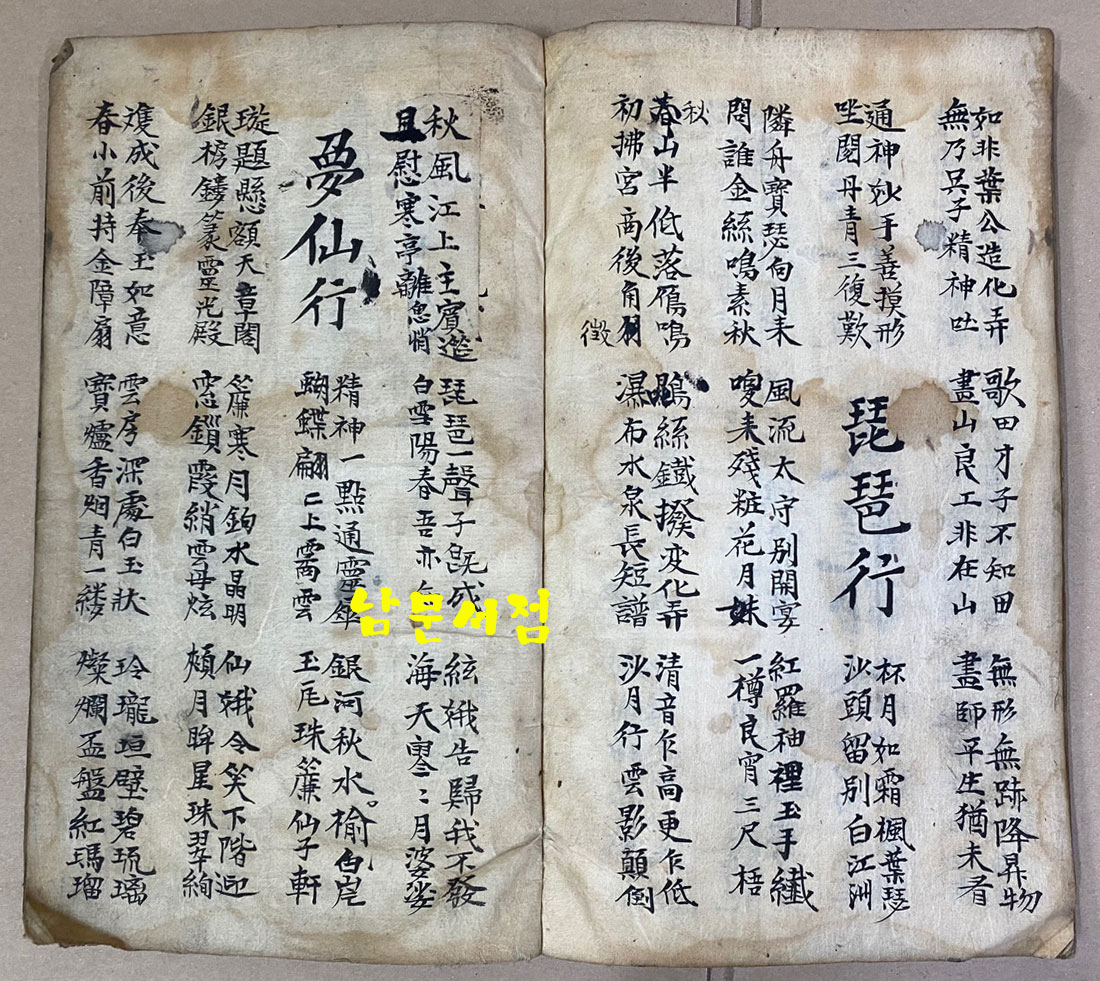 如非葉公造化弄
無乃吳子精神吐
歌田才子不知田
畫山良工非在山
無形無跡降昇物
畫師平生猶未看
通神妙手善摸形
坐閱丹青三復歎
琵琶行
杯月如霜楓葉瑟
沙頭留別白江洲
隣舟寶瑟向月未
問誰金絲鳴素秋
風流太守別開宴
来殘粧花月妹
紅羅袖裡玉手纖
一樽良宵三尺梧
秋
春山半低落鴈鳴
初拂宮商後角羽
徵
鵾絲鐵撥变化弄
瀑布水泉長短譜
清音乍高更乍低
沙月行雲影顛倒
秋風江上主賓筵
且慰寒亭離悄
琵琶一聲子旣成
白雪陽春吾亦
絃娥告歸我不發
海天寥〻月婆娑
夢仙行
精神一點通靈犀
蝴蝶翩〻上霱雲
銀河秋水榆白
玉珠簾仙子軒
璇題懸額天章閣
銀榜鏤篆靈光殿
簾寒月鉤水晶明
窓鎻霞綃雲母炫
仙娥含笑下階迎
頰月眸星珠翠絢
雙成後奉玉如意
春小前持金障扇
雲房深處白玉狀
寶爐香烟青一縷
玲瓏垣壁碧琉璃
燦爛盃盤紅瑪瑠
남문서점